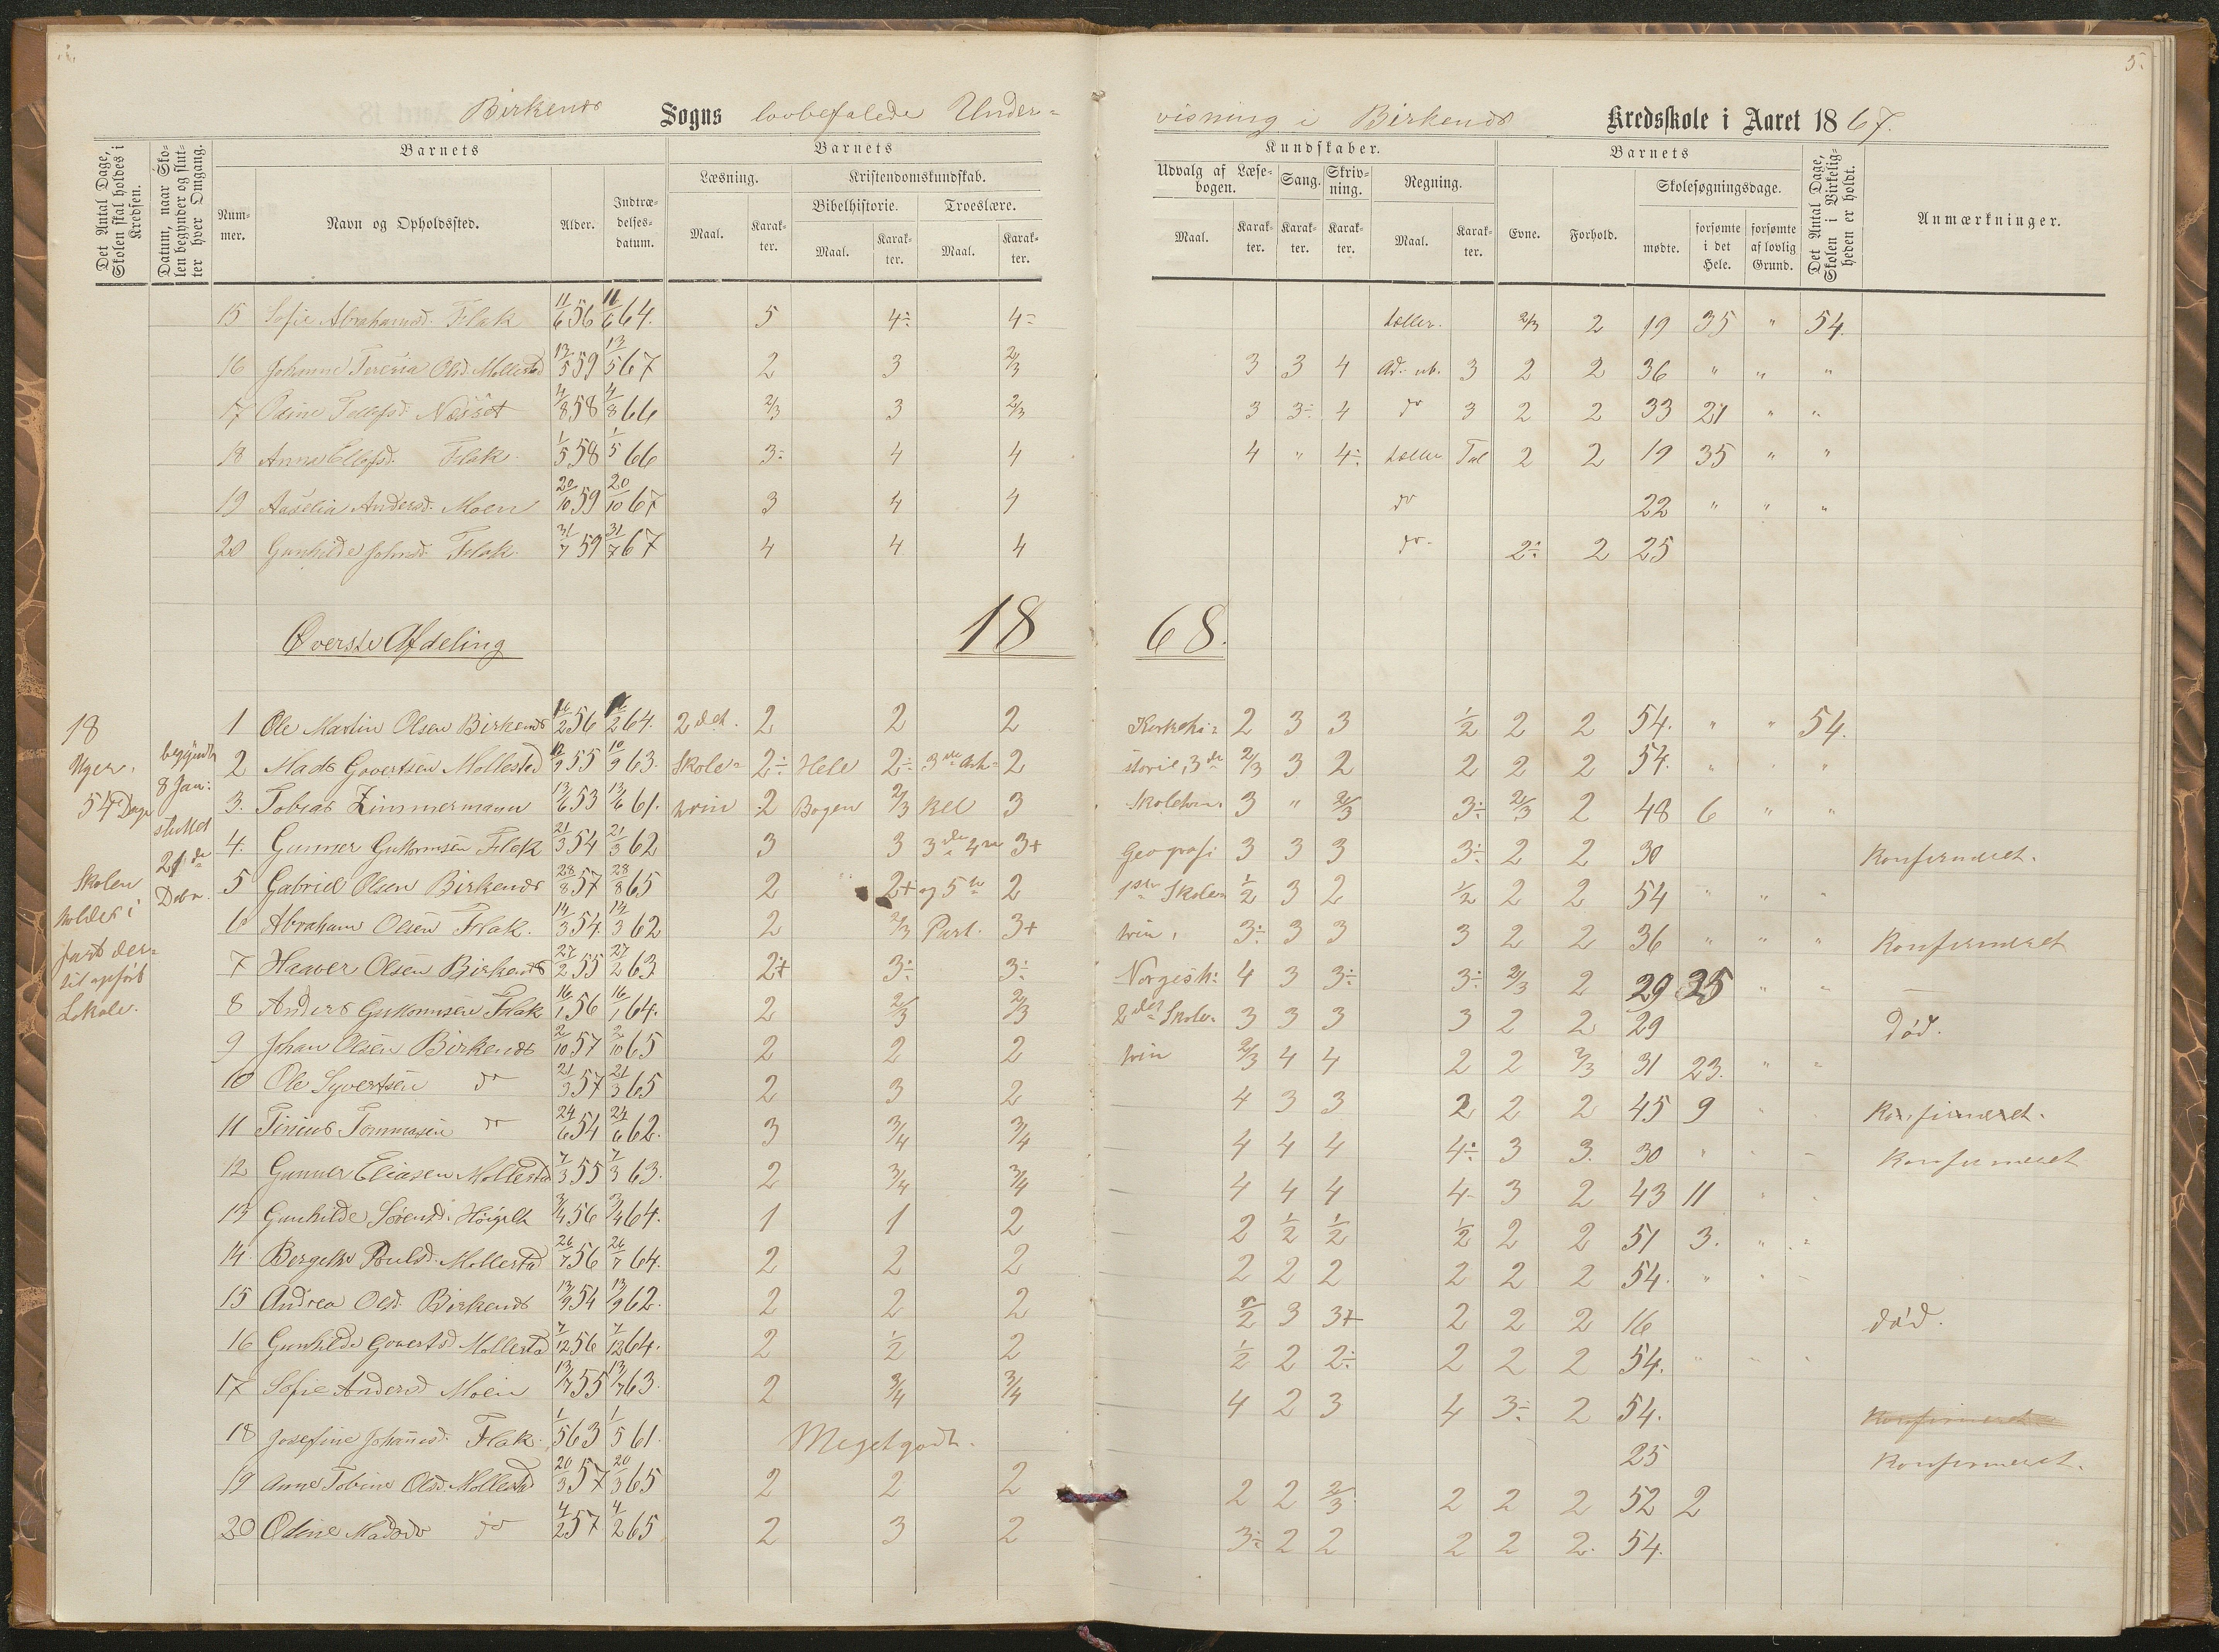 5.
Birkenes Sogns lovbefalede Under-
visning i Birkenes Kredsskole i Aaret 1867.
Det Antal Dage, Skolen skal holdes i Kredsen.
Datum, naar Skolen begynder og slutter hver Omgang.
Barnets
Barnets
Kundskaber.
Barnets
Det Antal Dage, Skolen i Virkeligheden er holdt.
Anmærkninger.
Nummer.
Navn og Opholdssted.
Alder.
Indtrædelsesdatum.
Læsning.
Kristendomskundskab.
Bibelhistorie.
Troeslære.
Maal.
Karakter.
Maal.
Karakter.
Maal.
Karakter.
Udvalg af Læsebogen.
Sang.
Skrivning.
Regning.
Maal.
Karakter.
Karakter.
Karakter.
Maal.
Karakter.
Evne.
Forhold.
Skolesøgningsdage.
mødte.
forsømte i det Hele.
forsømte af lovlig Grund.
15 Sofie Abrahamsd. Flak 11/6 56 11/6 64. 5 4÷ 4÷ tæller. 2/3 2 19 35 " 54.
16 Johanne Teresia Olsd. Mollestad 13/5 59 13/5 67 2 3 2/3 3 3 4 Ad. ub. 3 2 2 36 " " "
17 Osine Tellefsd. Næsset 4/8 58 4/8 66 2/3 3 2/3 3 3÷ 4 do 3 2 2 33 21 " "
18 Anne Ellefsd. Flak 1/5 58 1/5 66 3÷ 4 4 4 " 4÷ tæller Tal 2 2 19 35 " "
19 Aaselia Andersd. Moen 20/10 59 20/10 67 3 4 4 do 22 " " "
20 Gunhilde Johnsd. Flak 31/7 59 31/7 67 4 4 4 do 2÷ 2 25
Øverste Afdeling 1868.
18 Uger. 54 Dage
Skolen holdes i fast dertil opført Lokale.
begyndte 8 Jan: sluttet 21de Debr.
1 Ole Martin Olsen Birkenes 16/2 56 16/2 64. 2det. 2 2 2 Kirkehi- 2 3 3 1/2 2 2 54. " " 54.
2 Mads Govertsen Mollestad 10/9 55 10/9 63. Skole- 2÷ Hele 2÷ 3die Arti- 2 storie, 3de 2/3 3 2 2 2 2 54. " " "
3. Tobias Zimmermann 13/6 53 13/6 61. trin 2 Bogen 2/3 kel 3 Skoletrin 3 " 2/3 3÷ 2/3 2 48 6 " "
4. Gunner Guttormsen Flak 21/3 54 21/3 62 3 3 3de 4de 3+ Geografi 3 3 3 3÷ 2 2 30 Konfirmeret.
5 Gabriel Olsen Birkenes 28/8 57 28/8 65 2 2+ og 5te 2 1ste Skole- 1/2 3 2 1/2 2 2 54 " " "
6 Abraham Olsen Flak. 14/3 54 14/3 62 2 2/3 Part. 3+ trin, 3÷ 3 3 3 2 2 36 " " " Konfirmeret
7 Haaver Olsen Birkenes 27/2 55 27/2 63 2+ 3÷ 3÷ Norgesh: 4 3 3÷ 3÷ 2/3 2 29 25 " " —
8 Anders Guttormsen Flak 16/1 56 16/1 64. 2 2/3 2/3 2det Skole- 3 3 3 3 2 2 29 Død.
9 Johan Olsen Birkenes 2/10 57 2/10 65 2 2 2 trin 2/3 4 4 2 2 2/3 31 23. " "
10 Ole Syvertsen do 21/3 57 21/3 65 2 3 2 4 3 3 2 2 2 45 9 " Konfirmeret.
11 Tinius Tommasen do 24/6 54 24/6 62. 3 3/4 3/4 4 4 4 4÷ 3 3. 30 " Konfirmeret
12 Gunner Eliasen Mollestad 7/3 55 7/3 63. 2 3/4 3/4 4 4 4 4- 3 2 43 11
13 Gunhilde Sørensd. 3/4 56 3/4 64. 1 1 2 2 1/2 1/2 1/2 2 2 51 3. "
14. Bergethe Poulsd. Mollestad 26/7 56 26/7 64. 2 2 2 2 2 2 2 2 2 54. "
15 Andrea Olsd. Birkenes 13/9 54 13/9 62. 2 2 2 1/2 3 3+ 2 2 2 16 død.
16 Gunhilde Govertsd Mollestad 7/12 56 7/12 64. 2 1/2 2 1/2 2 2÷ 2 2 2 54.
17 Sofie Andersd Moen 13/7 55 13/7 63. 2 3/4 3/4 4 2 3 4 3÷ 2 54. Konfirmeret
18 Josefine Johannesd. Flak. 1/5 63 1/5 61. Meget godt. 25 Konfirmeret.
19 Anne Tobine Olsd. Mollestad 20/3 57 20/3 65 2 2 2 2 2 2/3 2 2 2 52 2
20 Odine Madsd. do 4/2 57 4/2 65 2 3 2 3÷ 2 2 2 2 2. 54.